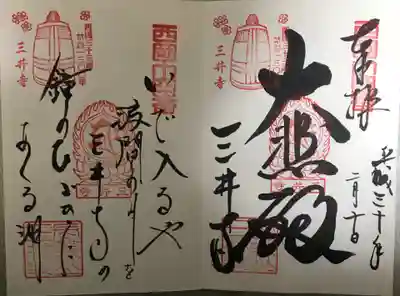 奉拝
平成三十年
二月十日
大悲殿
三井寺
三井寺
西国十四番
いで入るや
波間の月を
三井寺の
鐘のひびきに
あくる湖
三井寺